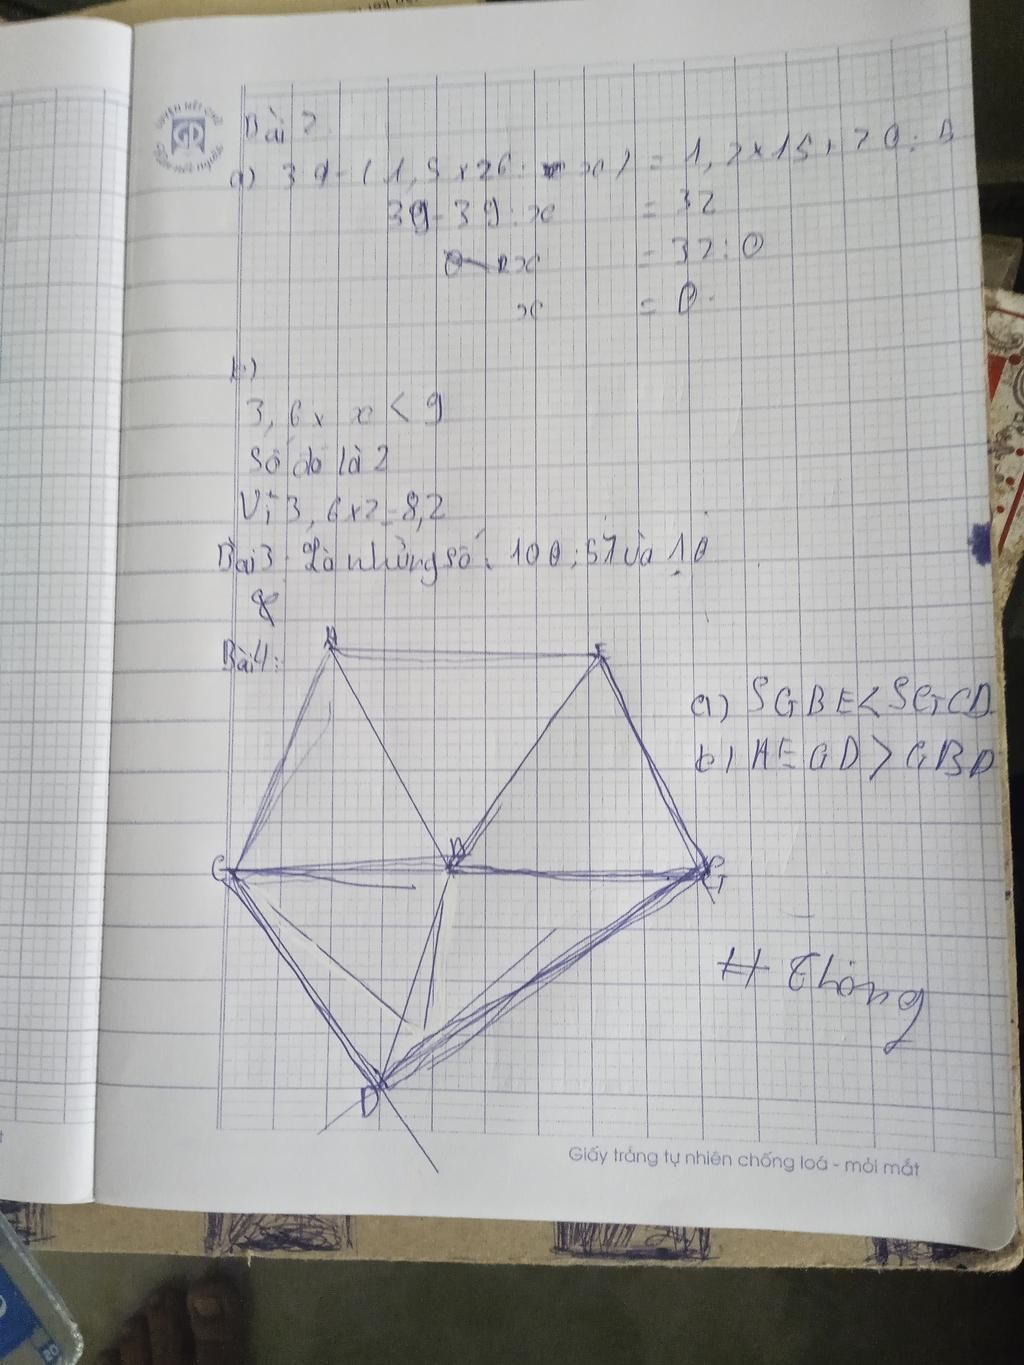 Bài 2
a) 39 - ( 1,5 x 26 : x ) = 1,2 x 15 + 70 : 5
39 - 39 : x = 32
x = 32 : 0
x = 0
b)
3,6 x x < 9
Số đó là 2
Vì 3,6 x 2 = 8,2
Bài 3 : Là những số : 100 ; 57 và 10
Bài 4 :
A E
a) SGBE < SGCD
b) AEGD > GBD
C B G
H Thông
D
Giấy trắng tự nhiên chống loá - mỏi mắt